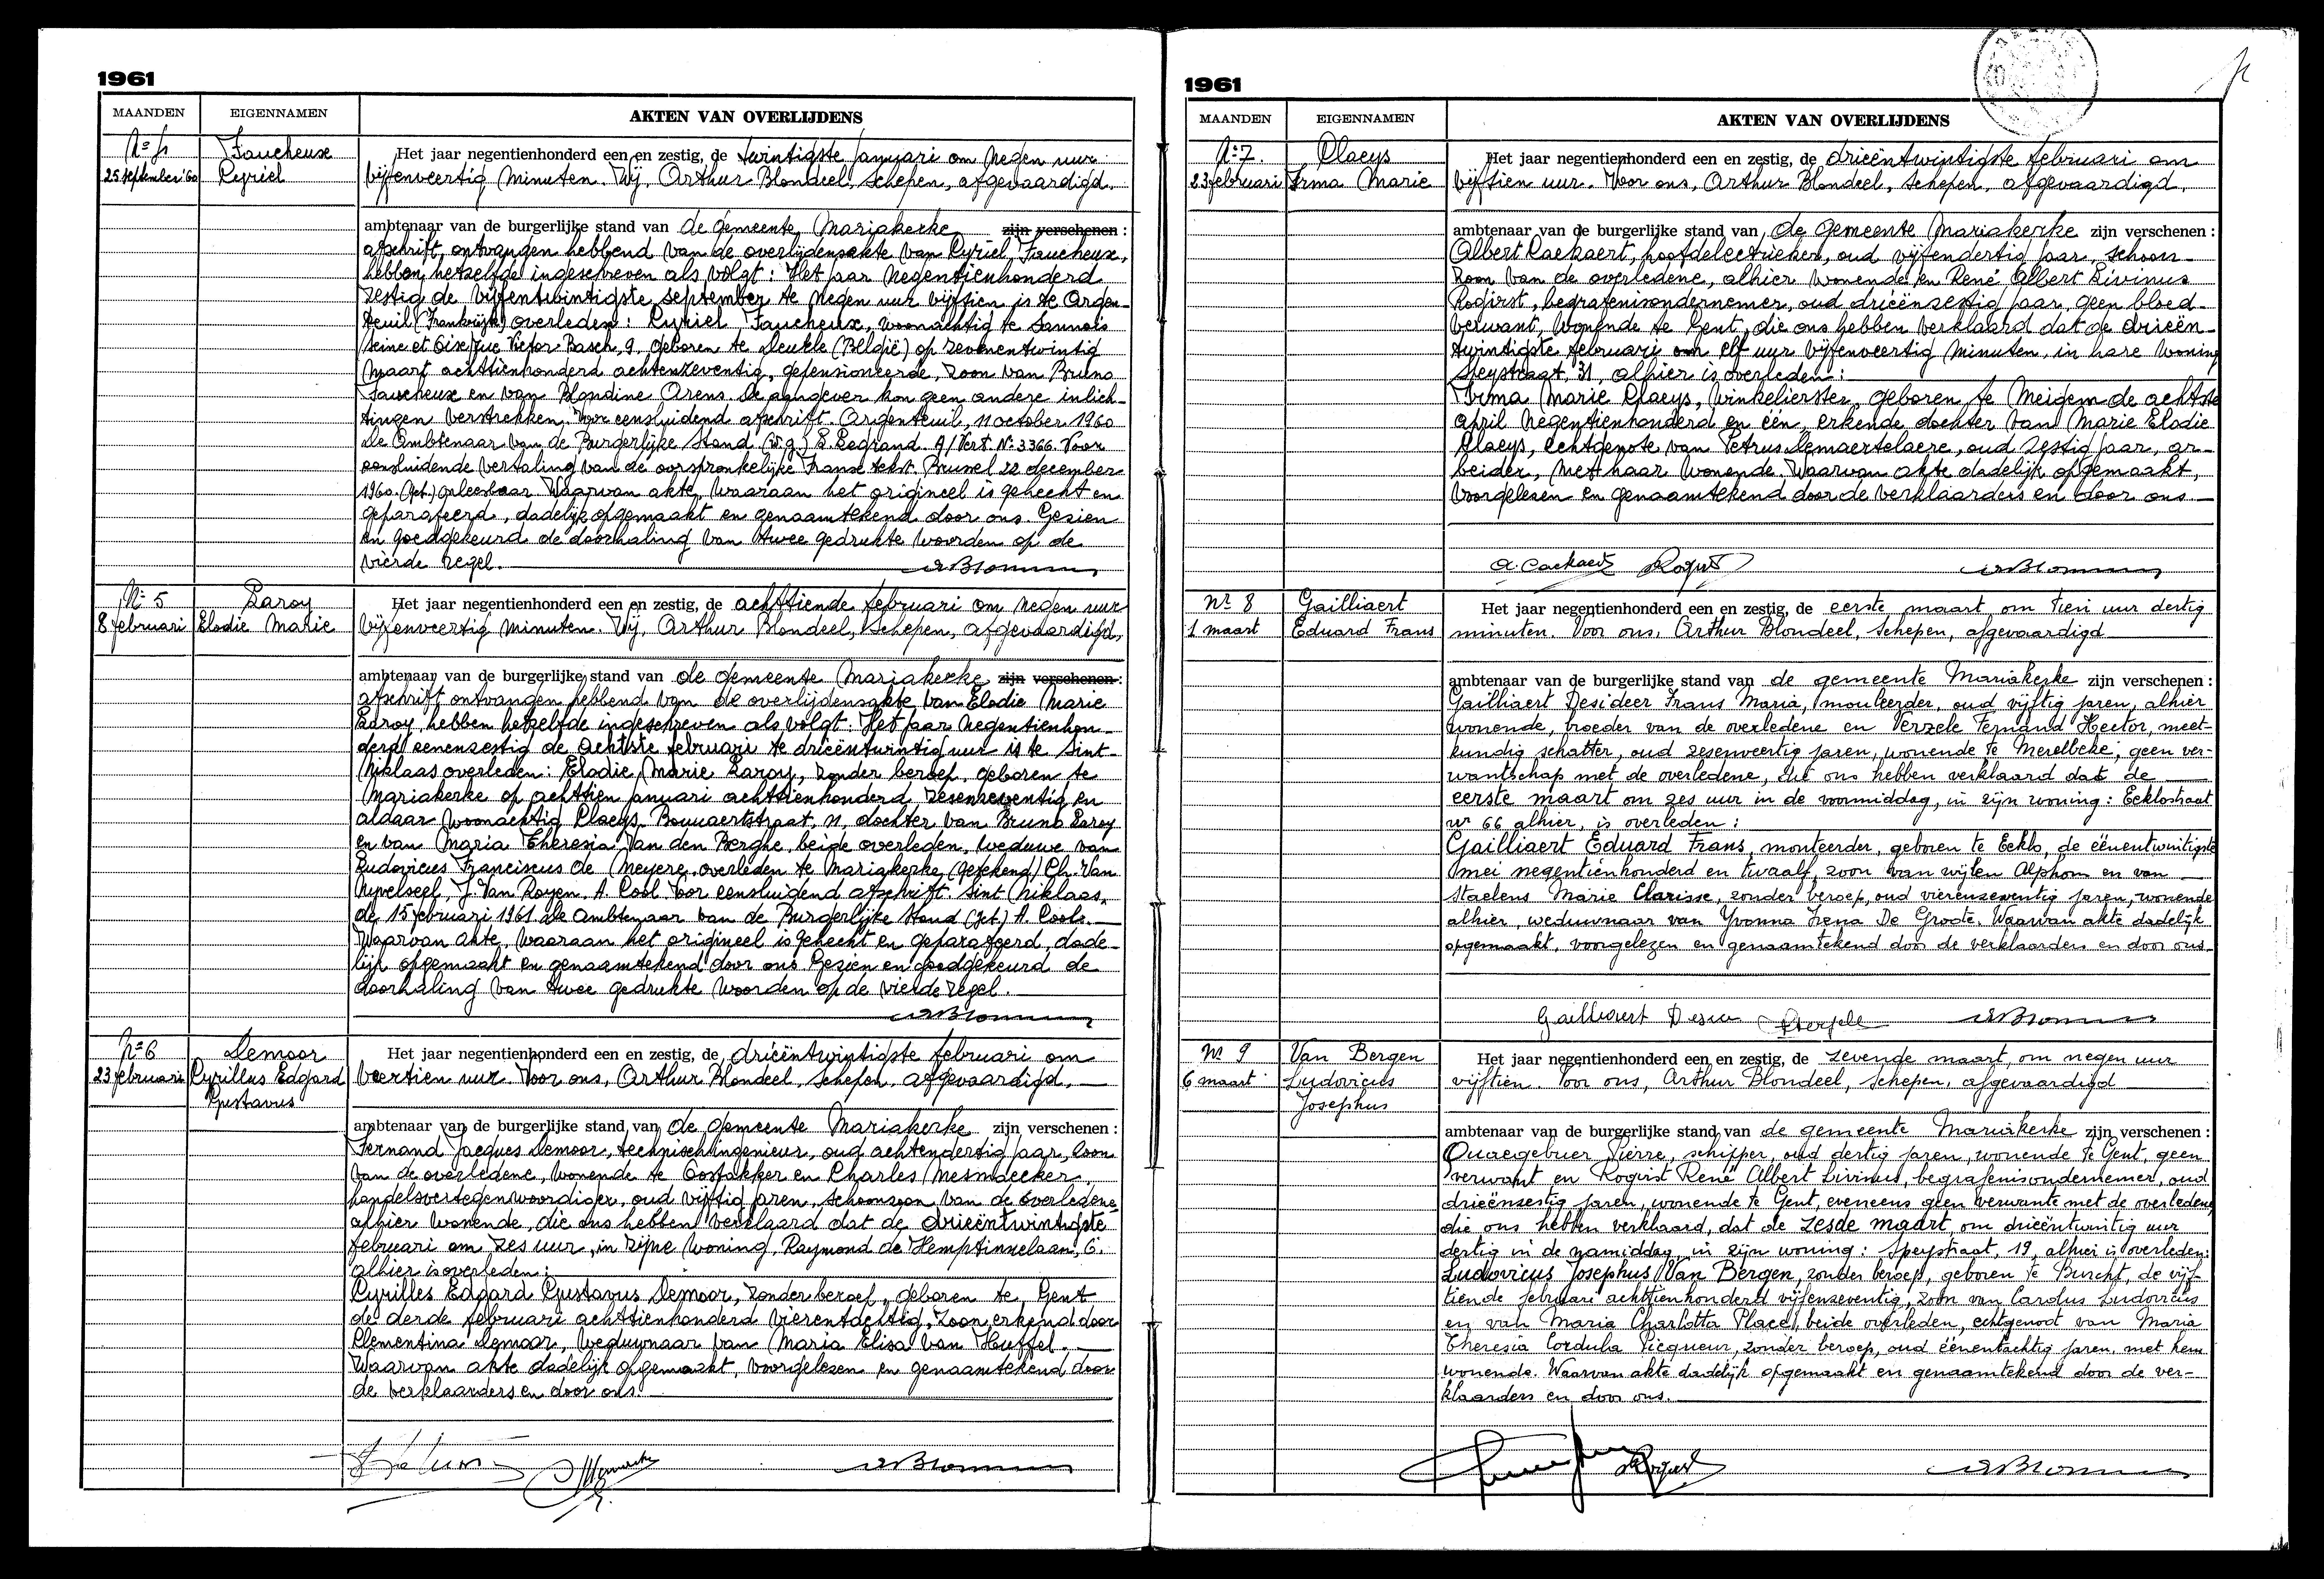 1961
MAANDEN EIGENNAMEN AKTEN VAN OVERLIJDENS
25 september '60
Faucheux
Cyriel
Het jaar negentienhonderd een en zestig, de twintigste januari om negen uur
vijfenveertig minuten. Wij, Arthur Blondeel, schepen, afgevaardigd.
ambtenaar van de burgerlijke stand van de gemeente Mariakerke zijn verschenen :
afschrift ontvangen hebbend van de overlijdensakte van Cyriel Faucheux,
hebben hetzelfde ingeschreven als volgt: Het jaar negentienhonderd
zestig de vijfentwintigste september te negen uur vijftien is te Argen-
teuil (Frankrijk) overleden: Cyriel Faucheux, woonachtig te Sannois
Seine et Oise, rue Victor Basch, 9, geboren te Deurle (België) op zevenentwintig
maart achttienhonderd achtenzeventig, gepensioneerde, zoon van Bruno
Faucheux en van Blondine Arens. De aangever kon geen andere inlich-
tingen verstrekken. Voor eensluidend afschrift. Argenteuil, 11 october 1960
De Ambtenaar van de Burgerlijke Stand (w.g.) Legrand. A/Vert. Nr. 3366. Voor
eensluidende vertaling van de oorspronkelijke Franse tekst. Brussel 22 december
1960. (Get.) Onleesbaar. Waarvan akte, waaraan het origineel is gehecht en
geparafeerd, dadelijk opgemaakt en genaamtekend door ons. Gezien
en goedgekeurd de doorhaling van twee gedrukte woorden op de
vierde regel.
Nr 5
8 februari
Laroy
Elodie Marie
Het jaar negentienhonderd een en zestig, de achttiende februari om negen uur
vijfenveertig minuten. Wij, Arthur Blondeel, schepen, afgevaardigd,
ambtenaar van de burgerlijke stand van de gemeente Mariakerke zijn verschenen :
afschrift ontvangen hebbend van de overlijdensakte van Elodie Marie
Laroy, hebben hetzelfde ingeschreven als volgt: Het jaar negentienhon-
derd eenenzestig de achtste februari te drieëntwintig uur is te Sint-
Niklaas overleden: Elodie Marie Laroy, zonder beroep, geboren te
Mariakerke op achttien januari achttienhonderd zesenzeventig en
aldaar woonachtig Claeys-Bouuaertstraat, 11, dochter van Bruno Laroy
en van Maria Theresia Van den Berghe, beide overleden, weduwe van
Ludovicus Franciscus De Meyere, overleden te Mariakerke (getekend) Ch. Van
J. Van Royen. A. Cool. Voor eensluidend afschrift. Sint Niklaas,
de 15 februari 1961. De Ambtenaar van de Burgerlijke Stand (get.) A. Cools.
Waarvan akte, waaraan het origineel is gehecht en geparafeerd, dade-
lijk opgemaakt en genaamtekend door ons. Gezien en goedgekeurd de
doorhaling van twee gedrukte woorden op de vierde regel.
Nr 6
23 februari
Demoor
Cyrillus Edgard
Gustavus
Het jaar negentienhonderd een en zestig, de drieëntwintigste februari om
veertien uur. Voor ons, Arthur Blondeel, schepen, afgevaardigd,
ambtenaar van de burgerlijke stand van de gemeente Mariakerke zijn verschenen :
Fernand Jacques Demoor, technisch ingenieur, oud achtendertig jaar, zoon
van de overledene, wonende te Oostakker en Charles Mesmaecker,
handelsvertegenwoordiger, oud vijftig jaren, schoonzoon van de overledene
alhier wonende, die ons hebben verklaard dat de drieëntwintigste
februari om zes uur, in zijne woning, Raymond de Hemptinnelaan, 6.
alhier is overleden:
Cyrilles Edgard Gustavus Demoor, zonder beroep, geboren te Gent
de derde februari achttienhonderd vierentachtig, zoon erkend door
Clementina Demoor, weduwnaar van Maria Elisa Van Heuffel.
Waarvan akte dadelijk opgemaakt, voorgelezen en genaamtekend door
de verklaarders en door ons.
1961
MAANDEN EIGENNAMEN AKTEN VAN OVERLIJDENS
Nr 7.
23 februari
Claeys
Irma Marie
Het jaar negentienhonderd een en zestig, de drieëntwintigste februari om
vijftien uur. Voor ons, Arthur Blondeel, schepen, afgevaardigd,
ambtenaar van de burgerlijke stand van de gemeente Mariakerke zijn verschenen :
Albert Caekaert, hoofdelectrieker, oud vijfendertig jaar, schoon-
zoon van de overledene, alhier wonende en René Albert Livinus
Rogirst, begrafenisondernemer, oud drieënzestig jaar, geen bloed-
verwant, wonende te Gent, die ons hebben verklaard dat de drieën-
twintigste februari om elf uur vijfenveertig minuten, in hare woning
Speystraat, 31, alhier is overleden:
Irma Marie Claeys, winkelierster, geboren te Meigem de achtste
april negentienhonderd en één, erkende dochter van Marie Elodie
Claeys, echtgenote van Petrus Demaertelaere, oud zestig jaar, ar-
beider, met haar wonende. Waarvan akte dadelijk opgemaakt,
voorgelezen en genaamtekend door de verklaarders en door ons.
A. Caekaert Rogirst
Nr. 8
1 maart
Gailliaert
Eduard Frans
Het jaar negentienhonderd een en zestig, de eerste maart om tien uur dertig
minuten. Voor ons, Arthur Blondeel, schepen, afgevaardigd
ambtenaar van de burgerlijke stand van de gemeente Mariakerke zijn verschenen :
Gailliaert Desideer Frans Maria, mouleerder, oud vijftig jaren, alhier
wonende, broeder van de overledene en Verzele Fernand Hector, meet-
kundig schatter, oud zesenveertig jaren, wonende te Merelbeke, geen ver-
wantschap met de overledene, die ons hebben verklaard dat de
eerste maart om zes uur in de voormiddag, in zijn woning: Eeklostraat
nr 66 alhier, is overleden :
Gailliaert Eduard Frans, monteerder, geboren te Eeklo, de éénentwintigste
mei negentienhonderd en twaalf, zoon van wijlen Alphons en van
Staelens Marie Clarisse, zonder beroep, oud vierenzeventig jaren, wonende
alhier, weduwnaar van Yvonna Irena De Groote. Waarvan akte dadelijk
opgemaakt, voorgelezen en genaamtekend door de verklaarders en door ons.
Gailliaert Desir
Nr. 9
6 maart
Van Bergen
Ludovicus
Josephus
Het jaar negentienhonderd een en zestig, de zevende maart, om negen uur
vijftien. Voor ons, Arthur Blondeel, schepen, afgevaardigd
ambtenaar van de burgerlijke stand van de gemeente Mariakerke zijn verschenen :
Ouaegebuer Pierre, schipper, oud dertig jaren, wonende te Gent, geen
verwant en Rogirst René Albert Livinus, begrafenisondernemer, oud
drieënzestig jaren, wonende te Gent, eveneens geen verwante met de overledene,
die ons hebben verklaard, dat de zesde maart, om drieëntwintig uur
dertig in de namiddag, in zijn woning: Speystraat, 19, alhier is overleden:
Ludovicus Josephus Van Bergen, zonder beroep, geboren te Burcht, de vijf-
tiende februari achttienhonderd vijfenzeventig, zoon van Carolus Ludovicus
en van Maria Charlotta Place, beide overleden, echtgenoot van Maria
Theresia Cordula Picqueur, zonder beroep, oud éénentachtig jaren, met hem
wonende. Waarvan akte dadelijk opgemaakt en genaamtekend door de ver-
klaarders en door ons.
Rogirst